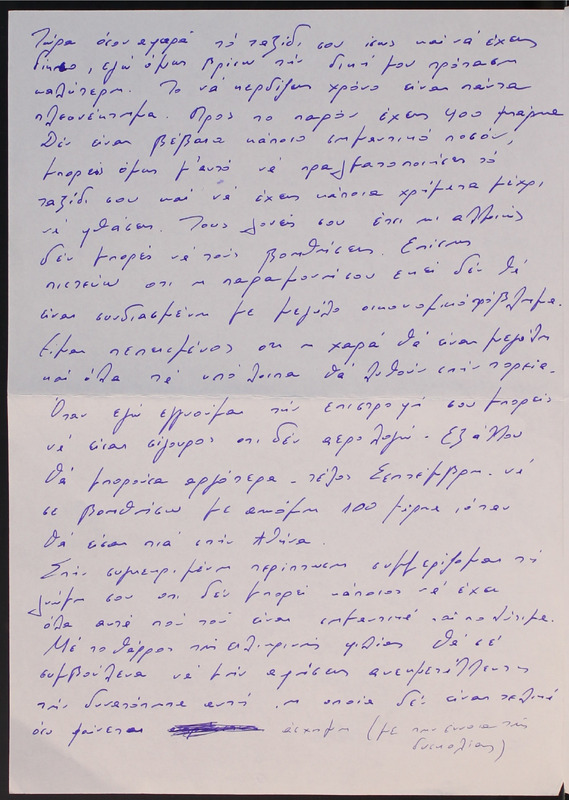 Τώρα όσον αφορά τό ταξίδι σου ίσως καί νά έχεις
δίκιο, εγώ όμως βρίσκω τήν δική μου πρόταση
καλύτερη. Το νά κερδίζεις χρόνο είναι πάντα
πλεονέκτημα. Προς το παρόν έχεις 400 μάρκα
Δέν είναι βέβαια κάποιο σημαντικό ποσόν,
μπορείς όμως μ'αυτό νά πραγματοποιήσεις τό
ταξίδι σου καί νά έχεις κάποια χρήματα μέχρι
νά φθάσεις. Τους γονείς σου έτσι κι αλλιώς
δέν μπορείς νά τούς βοηθήσεις. Επίσης
πιστεύω οτι η παραμονή σου εκεί δέν θά
είναι συνδιασμένη με μεγάλο οικονομικό πρόβλημα.
Είμαι πεπεισμένος οτι η χαρά θά είναι μεγάλη
καί όλα τά υπόλοιπα θά λυθούν στήν πορεία.
Οταν εγώ εγγυούμαι τήν επιστροφή σου μπορείς
νά είσαι σίγουρος οτι δέν αερολογώ. Εξ άλλου
θά μπορούσα αργότερα - τέλος Σεπτέμβρη - νά
σε βοηθήσω με ακόμη 100 μάρκα, όταν
θά είσαι πιά στήν Αθήνα.
Στήν συγκεκριμένη περίπτωση συμμερίζομαι τή
γνώμη σου οτι δέν μπορεί κάποιος νά έχει
όλα αυτά πού τού είναι σημαντικά καί πολύτιμα.
Μέ το θάρρος τής ειλικρινής φιλίας θά σέ
συμβούλευα νά μήν αφήσεις ανεκμετάλλευτη
τήν δυνατότητα αυτή, η οποία δέν είναι τελικά
όσο φαίνεται άσχημη (με την έννοια τής
δυσκολίας)